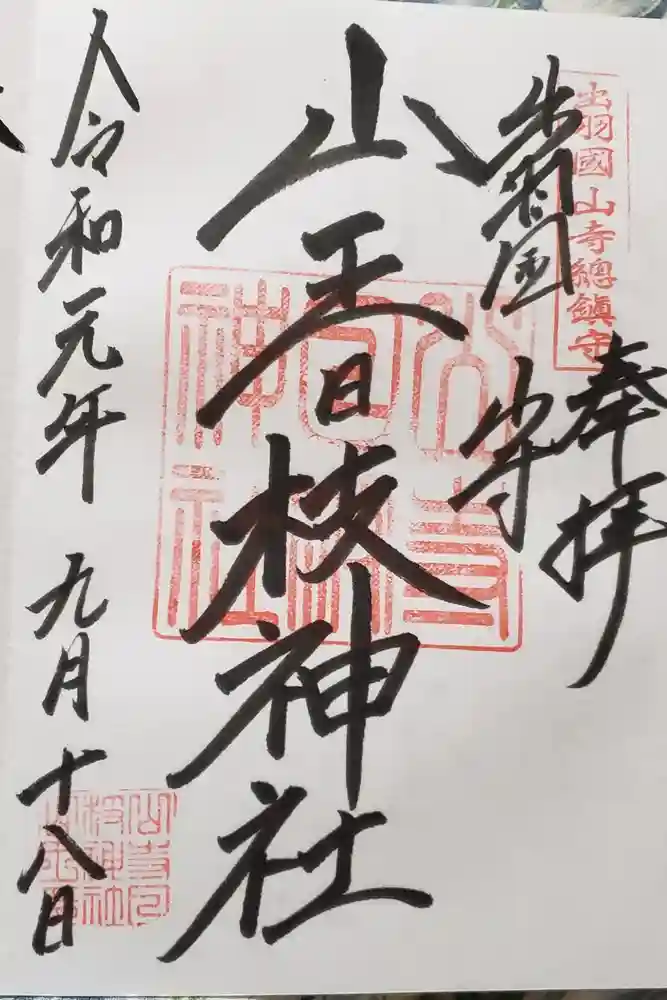 出羽國山寺總鎮守
奉拝
出羽国
山寺
山王日枝神社
山寺
日枝
神社
令和元年 九月十八日